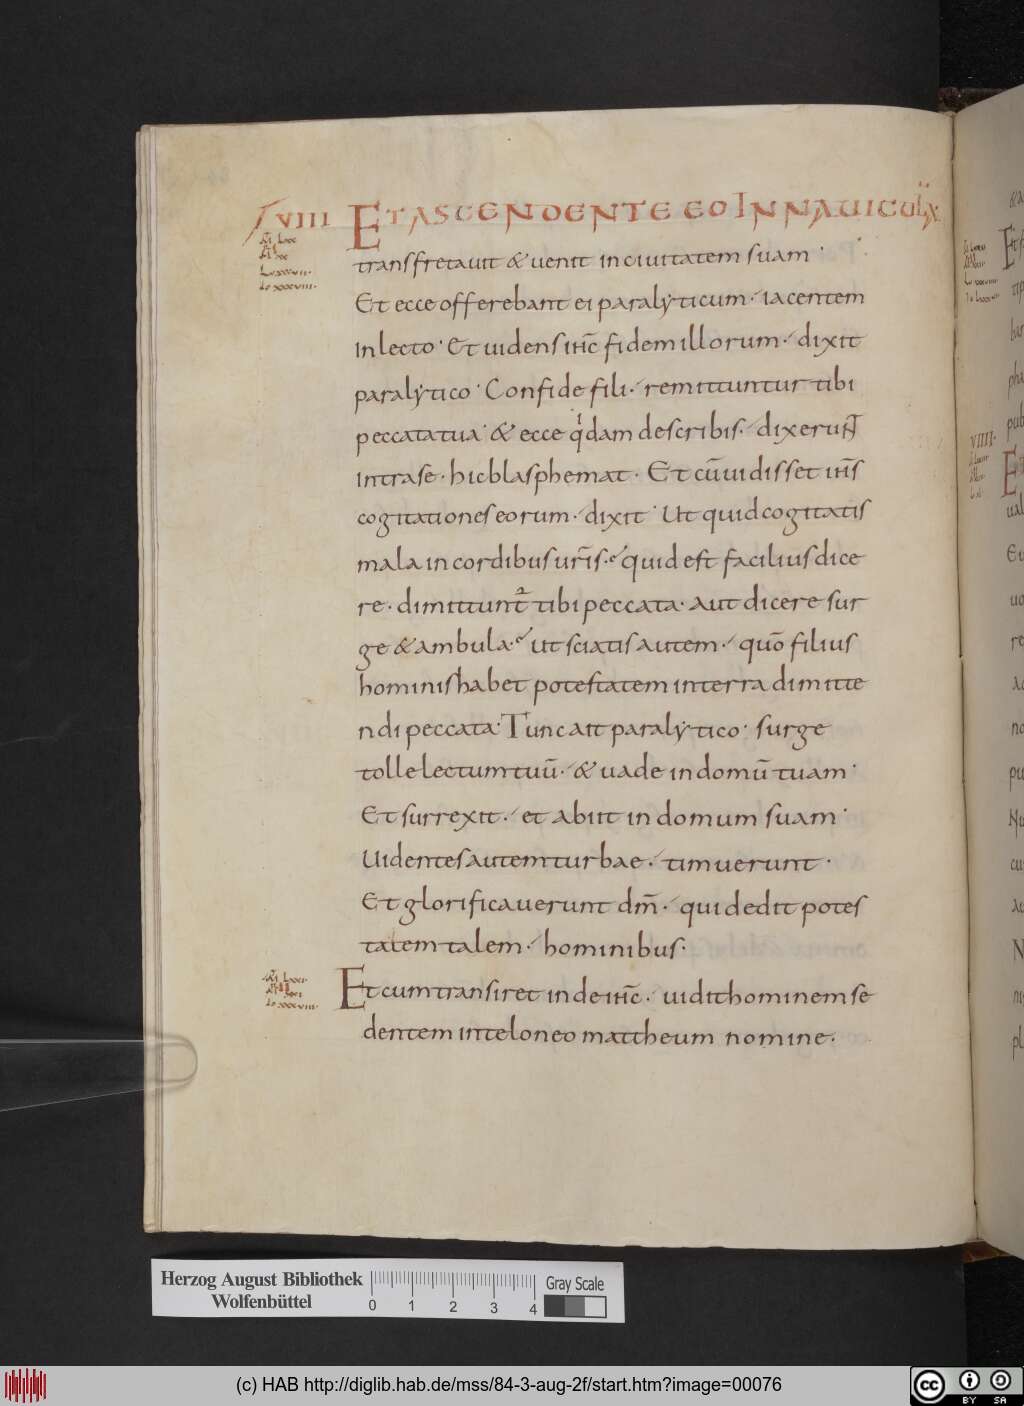 VIII ET ASCENDENTE EO IN NAVICULA
transfretauit & uenit in ciuitatem suam·
Et ecce offerebant ei paralyticum· iacentem
in lecto· Et uidens ihc̄ fidem illorum· dixit
paralytico· Confide fili· remittuntur tibi
peccata tua· & ecce qͥdam de scribis· dixerunt
intra se· hic blasphemat· Et cū uidisset ihs̄
cogitationes eorum· dixit· Ut quid cogitatis
mala in cordibus uris̄· quid est facilius dice
re· dimittunt᷑ tibi peccata· aut dicere sur
ge & ambula· ut sciatis autem· quō filius
hominis habet potestatem in terra dimitte
ndi peccata· Tunc ait paralytico· surge
tolle lectum tuū· & uade in domū tuam·
Et surrexit· et abiit in domum suam·
Uidentes autem turbae· timuerunt·
Et glorificauerunt dm̄· qui dedit potes
tatem talem· hominibus·
Et cum transiret inde ihc̄· uidit hominem se
dentem in teloneo mattheum nomine·
VIIII·
Herzog August Bibliothek
Wolfenbüttel
0 1 2 3 4
Gray Scale
(c) HAB http://diglib.hab.de/mss/84-3-aug-2f/start.htm?image=00076
cc BY SA